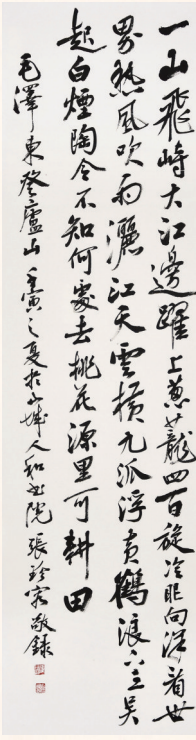 一山飛峙大江邊躍上蔥蘢四百旋冷眼向洋看世
界熱風吹雨灑江天雲橫九派浮黃鶴浪下三吳
起白煙陶令不知何處去桃花源里可耕田
毛澤東登廬山 壬寅之夏於山城人和書院 張珍敬錄